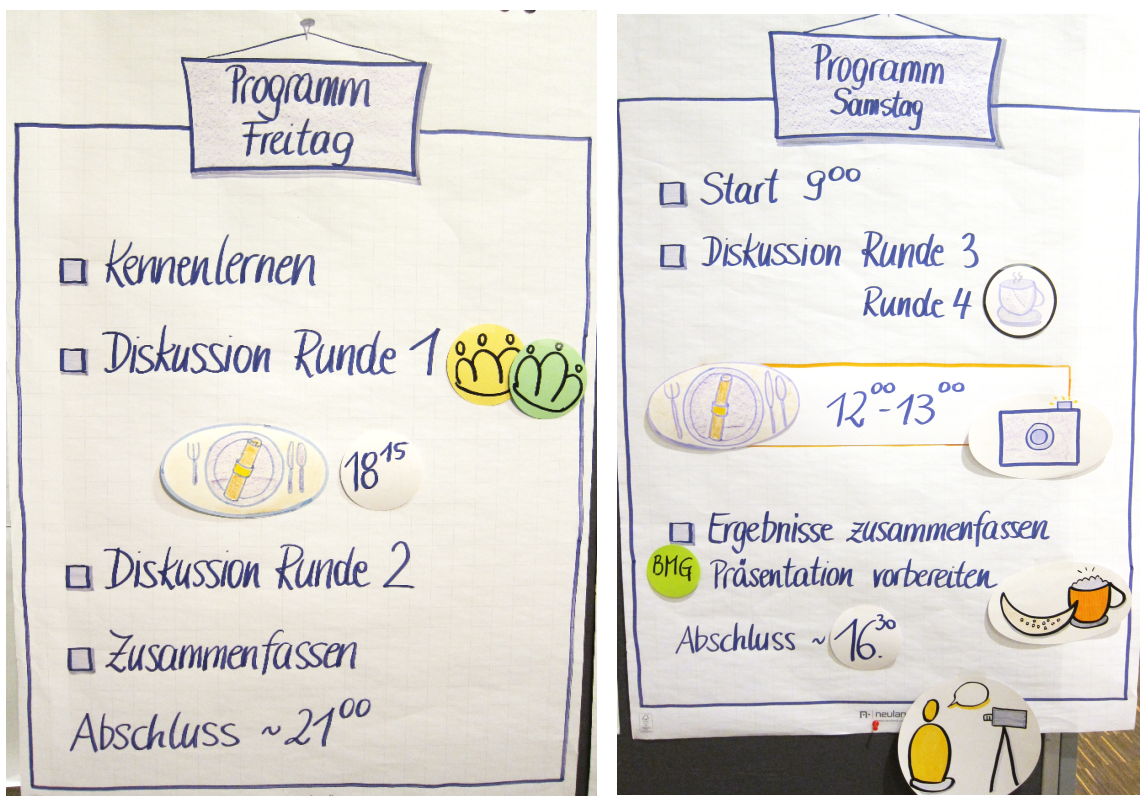 Programm
Freitag
Kennenlernen
Diskussion Runde 1
18 15
Diskussion Runde 2
Zusammenfassen
Abschluss ~ 21 00
Programm
Samstag
Start 9 00
Diskussion Runde 3
Runde 4
12 00 - 13 00
Ergebnisse zusammenfassen
BMG Präsentation vorbereiten
Abschluss ~ 16. 30